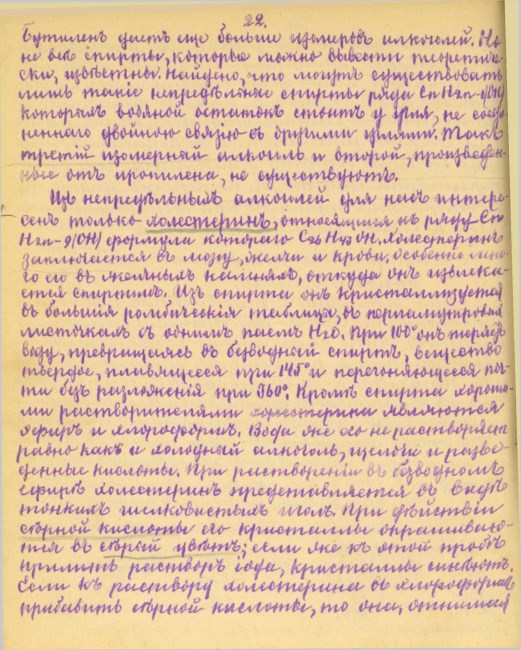 22.
Бутиленъ даетъ еще больше изомеровъ алкоголей. Но
не всѣ спирты, которые можно вывести теоретиче-
ски, извѣстны. Найдено, что могутъ существовать
лишь такіе непредѣльные спирты ряда CnH2n-1(OH)
которыхъ водяной остатокъ стоитъ у угля, не соеди-
неннаго двойною связью съ другими углями. Такъ
третій изомерный алкоголь и второй, произведен-
ные отъ пропилена, не существуютъ.
Изъ непредѣльныхъ алкоголей для насъ интере-
сенъ только холестеринъ, относящійся къ ряду Cn
H2n-9(OH) формула котораго C26H43OH. Холестеринъ
заключается въ мозгу, желчи и крови, особенно мно-
го его въ желчныхъ камняхъ, откуда онъ извлека-
ется спиртомъ. Изъ спирта онъ кристаллизуется
въ большія ромбическія таблицы, въ перламутровыя
листочкахъ съ однимъ паемъ H2O. При 100° онъ теряетъ
воду, превращаясь въ безводный спиртъ, вещество
твердое, плавящееся при 145° и перегоняющееся поч-
ти безъ разложенія при 360°. Кромѣ спирта хороши-
ми растворителями холестерина являются
эфиръ и хлороформъ. Вода же его не растворяетъ
равно какъ и холодный алкоголь, щелочи и разве-
денные кислоты. При раствореніи въ безводномъ
эфирѣ холестеринъ представляется въ видѣ
тонкихъ шелковистыхъ иголъ. При дѣйствіи
сѣрной кислоты его кристаллы окрашиваю-
тся въ сѣрый цвѣтъ; если же къ этой пробѣ
прилить растворъ іода, кристаллы синѣютъ.
Если къ раствору холестерина въ хлороформѣ
прибавить сѣрной кислоты, то она, отнимая